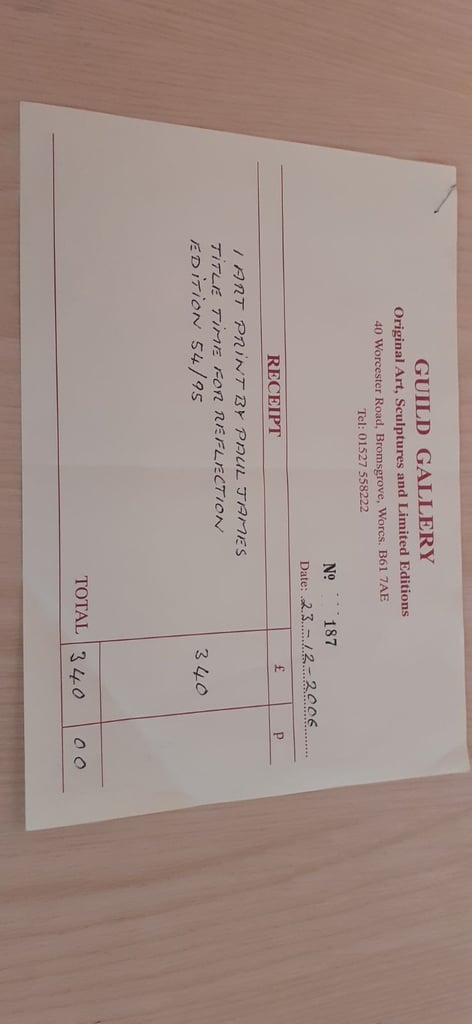 GUILD GALLERY
Original Art, Sculptures and Limited Editions
40 Worcester Road, Bromsgrove, Worcs. B61 7AE
Tel: 01527 558222
Nº 187
Date: 23-12-2006
RECEIPT £ p
1 ART PRINT BY PAUL JAMES
TITLE TIME FOR REFLECTION 340
EDITION 54/95
TOTAL 340 00